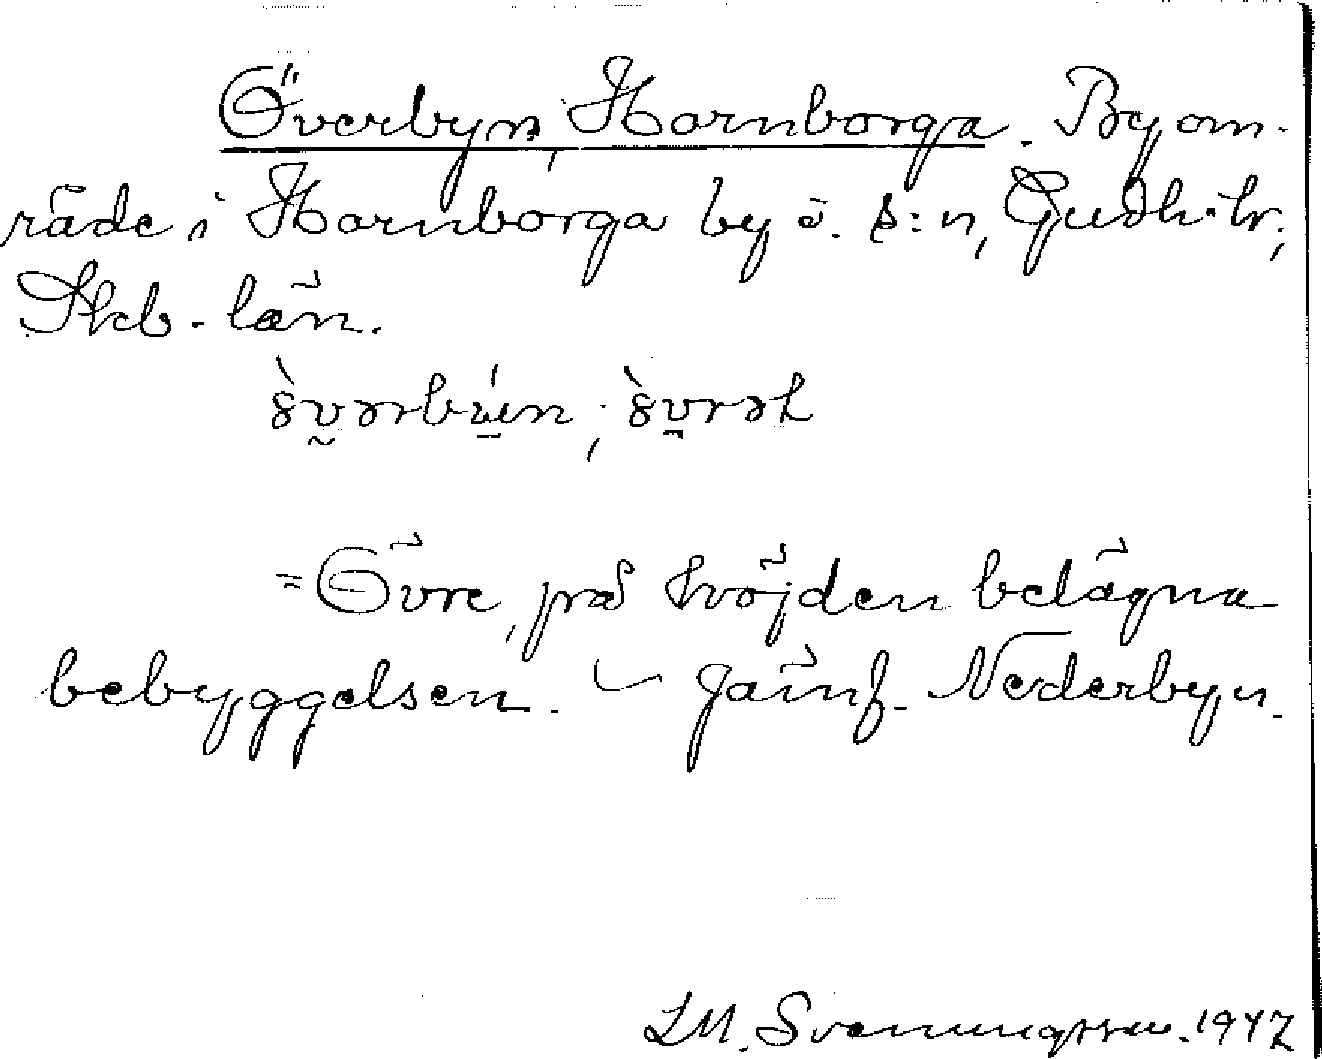 Överbyn, Hornborga. Byom-
råde i Hornborga by o. s:n, Gudh. hr,
Skb. län.
= Övre, på höjden belägna
bebyggelsen. – Jämf. Nederbyn.
LM. Svenungsson. 1947